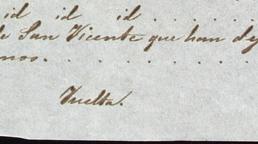 id id id . . . . . .
de San Vicente que han d
nos. . . . . . . .
Vuelta.